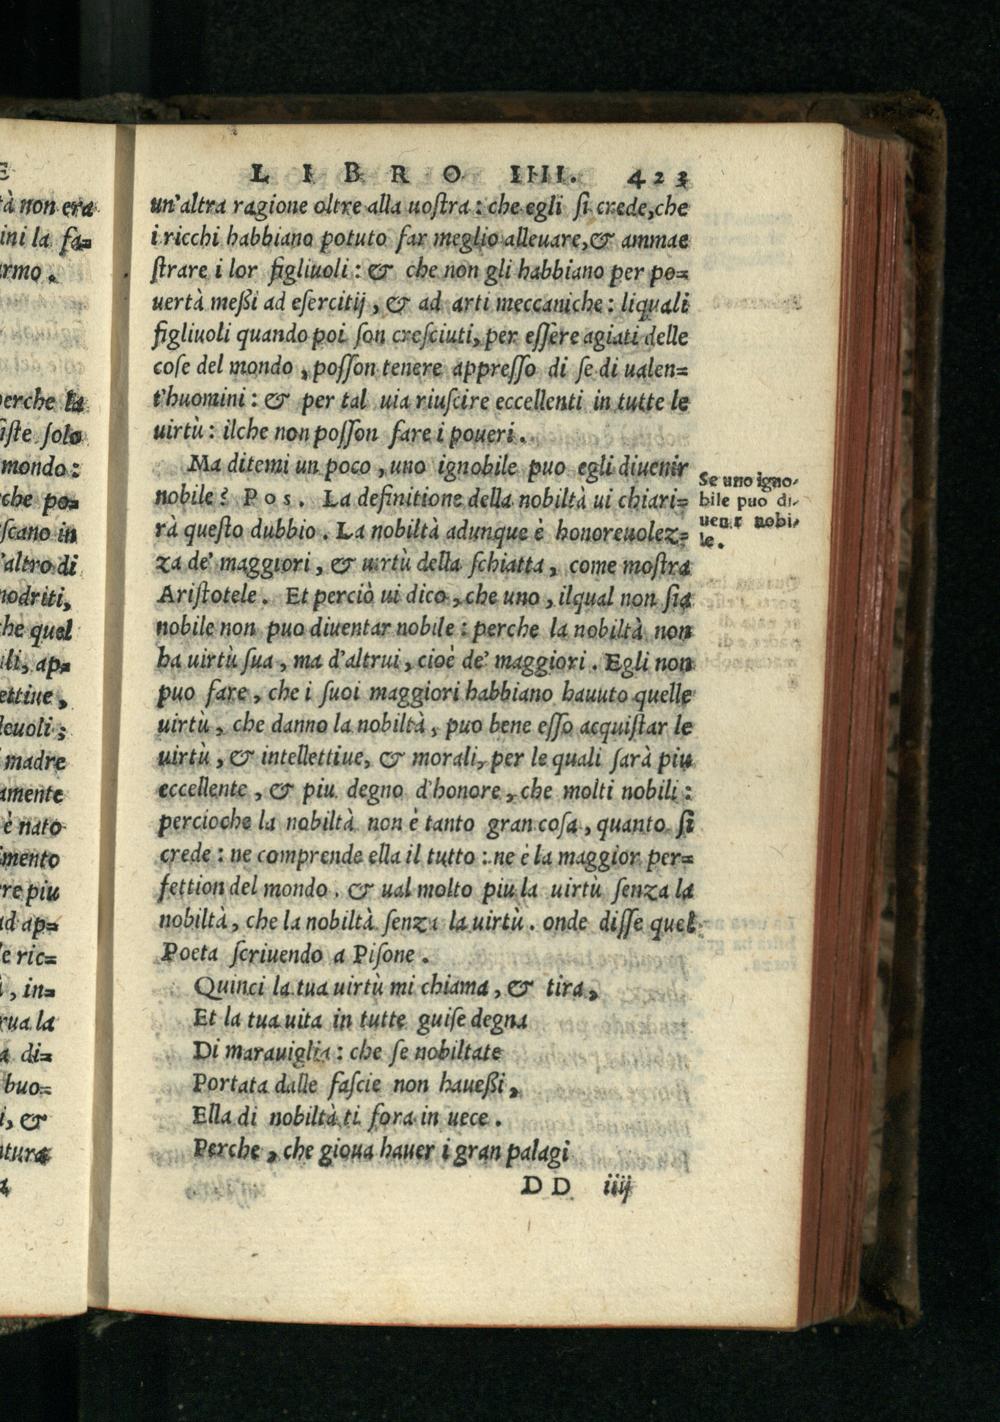 E
tà non era
ini la fa=
rmo.
perche la
siste solo
mondo:
che po=
scano in
l'altro di
nodriti,
che quel
ili, ap=
ettiue,
leuoli;
madre
amente
è nato
imento
re piu
ad ap=
le ric=
, in=
rua la
a di=
buo=
i, &
ntura
LIBRO IIII. 423
un'altra ragione oltre alla uoſtra: che egli ſi crede, che
i ricchi habbiano potuto far meglio alleuare, & ammae
ſtrare i lor figliuoli: & che non gli habbiano per po=
uertà meßi ad eſercitij, & ad arti meccaniche: liquali
figliuoli quando poi ſon creſciuti, per eſſere agiati delle
coſe del mondo, poſſon tenere appreſſo di ſe di ualen=
t'huomini: & per tal uia riuſcire eccellenti in tutte le
uirtù: ilche non poſſon fare i poueri.
Ma ditemi un poco, uno ignobile puo egli diuenir
nobile? Pos. La definitione della nobiltà ui chiari=
rà queſto dubbio. La nobiltà adunque è honoreuolez=
za de' maggiori, & uirtù della ſchiatta, come moſtra
Ariſtotele. Et perciò ui dico, che uno, ilqual non ſia
nobile non puo diuentar nobile: perche la nobiltà non
ha uirtù ſua, ma d'altrui, cioè de' maggiori. Egli non
puo fare, che i ſuoi maggiori habbiano hauuto quelle
uirtù, che danno la nobiltà, puo bene eſſo acquiſtar le
uirtù, & intellettiue, & morali, per le quali ſarà piu
eccellente, & piu degno d'honore, che molti nobili:
percioche la nobiltà non è tanto gran coſa, quanto ſi
crede: ne comprende ella il tutto: ne è la maggior per=
fettion del mondo. & ual molto piu la uirtù ſenza la
nobiltà, che la nobiltà ſenza la uirtù. onde diſſe quel
Poeta ſcriuendo a Piſone.
Quinci la tua uirtù mi chiama, & tira,
Et la tua uita in tutte guiſe degna
Di marauiglia: che ſe nobiltate
Portata dalle faſcie non haueßi,
Ella di nobiltà ti fora in uece.
Perche, che gioua hauer i gran palagi
DD iiij
Se uno igno-
bile puo di-
uenir nobi-
le.